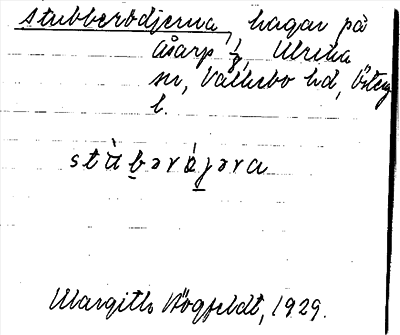 stubberödjerna, hagar på
Åsarp 1/8, Ulrika
sn, Valkebo hd, Österg
l.
stàbərǿjəra
Margith Högfeldt, 1929.